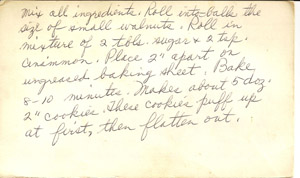 Mix all ingredients. Roll into balls the
size of small walnuts. Roll in
mixture of 2 tbls. sugar & 2 tsp.
Cinnimon. Place 2" apart on
ungreased baking sheet. Bake
8-10 minutes. Makes about 5 doz.
2" cookies. These cookies puff up
at first, then flatten out.